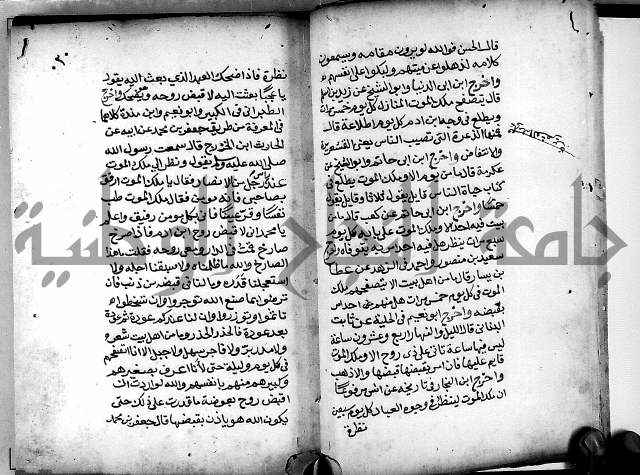 قال الحسن فوالله لو يرون مقامه ويسمعون
كلامه لذهلوا عن ميتهم ولبكوا على انفسهم
واخرج ابن ابى الدنيا وابو الشيخ عن زيد بن اسلم
قال يتصفح ملك الموت المنازل كل يوم خمس مرات
ويطلع في وجه ابن ادم كل يوم اطلاعة قال
فمنها الذعرة التى تصيب الناس يعنى القشعريرة
والانتفاض واخرج ابن ابى حاتم وابو الشيخ عن
عكرمة قال ما من يوم الا وملك الموت يطلع في
كتاب حياة الناس قايل يقول ثلاثا وقايل يقول
خمسا واخرج ابن ابى حاتم عن كعب قال ما من
بيت فيه احد الا وملك الموت على بابه كل يوم
سبع مرات ينظر هل فيه احد امر به يتوفاه واخرج
سعيد بن منصور واحمد في الزهد عن عطا
بن يسار قال ما من اهل بيت الا يتصفحهم ملك
الموت في كل يوم خمس مرات هل منهم من احد امر
بقبضه واخرج ابو نعيم في الحلية عن ثابت
البنانى قال الليل والنهار اربع وعشرون ساعة
ليس فيها ساعة تاتى على ذى روح الا وملك الموت
قايم عليها فان امر بقبضها قبضها والا ذهب
واخرج ابن النجار في تاريخه عن انس مرفوعا
ان ملك الموت لينظر في وجوه العباد كل يوم سبعين
نظرة
نظرة فاذا ضحك العبد الذي بعث اليه يقول
يا عجبا بعثت اليه لاقبض روحه وهو يضحك واخرج
الطبرانى في الكبير وابو نعيم وابن مندة كلاهما
في المعرفة من طريق جعفر بن محمد عن ابيه عن
الحارث ابن الخزرج قال سمعت رسول الله
صلى الله عليه وسلم يقول ونظر الى ملك الموت
عند راس رجل من الانصار فقال يا ملك الموت ارفق
بصاحبى فانه مومن فقال ملك الموت طب
نفسا وقر عينا فانى بكل مومن رفيق واعلم
يا محمد انى لاقبض روح ابن ادم فاذا صرخ
صارخ قمت في الدار ومعى روحه فقلت ما هذا
الصارخ والله ما ظلمناه ولا سبقنا اجله ولا
استعجلنا قدره وما لنا في قبضه من ذنب فان
ترضوا بما صنع الله توجروا وان تسخطوا
تاثموا وتوزروا وان لنا عندكم عودة ثم عودة
بعد عودة فالحذر الحذر وما من اهل بيت شعر
ولا مدر بر ولا فاجر سهل ولا جبل الا انا اتصفحهم
في كل يوم وليلة حتى لانا اعرف بصغيرهم
وكبيرهم منهم بانفسهم والله لو اردت ان
اقبض روح بعوضة ما قدرت على ذلك حتى
يكون الله هو ياذن بقبضها قال جعفر بن محمد
جامعة النجاح الوطنية